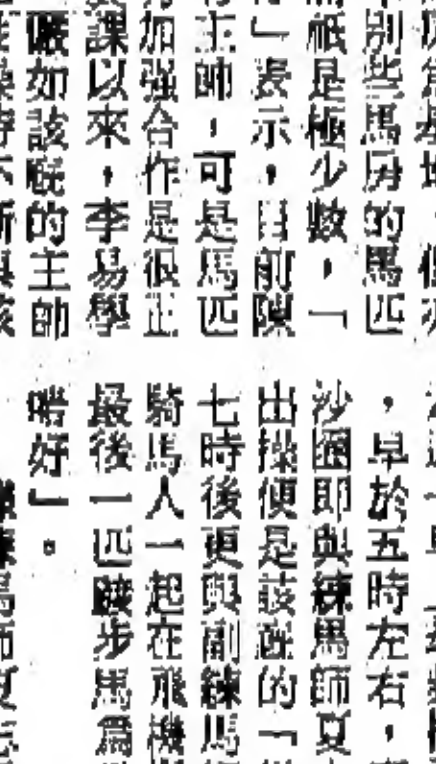 別些馬房的馬匹
祇是極少數，「
」表示，目前陳
主帥，可是馬匹
加强合作是很正
課以來，李易學
如該廐的主帥
，早於五時左右，
沙圈即與練馬師夏
出操便是該廐的「
七時後更與副練馬
騎馬人一起在飛機
最後一匹踱步馬爲
啱好」。